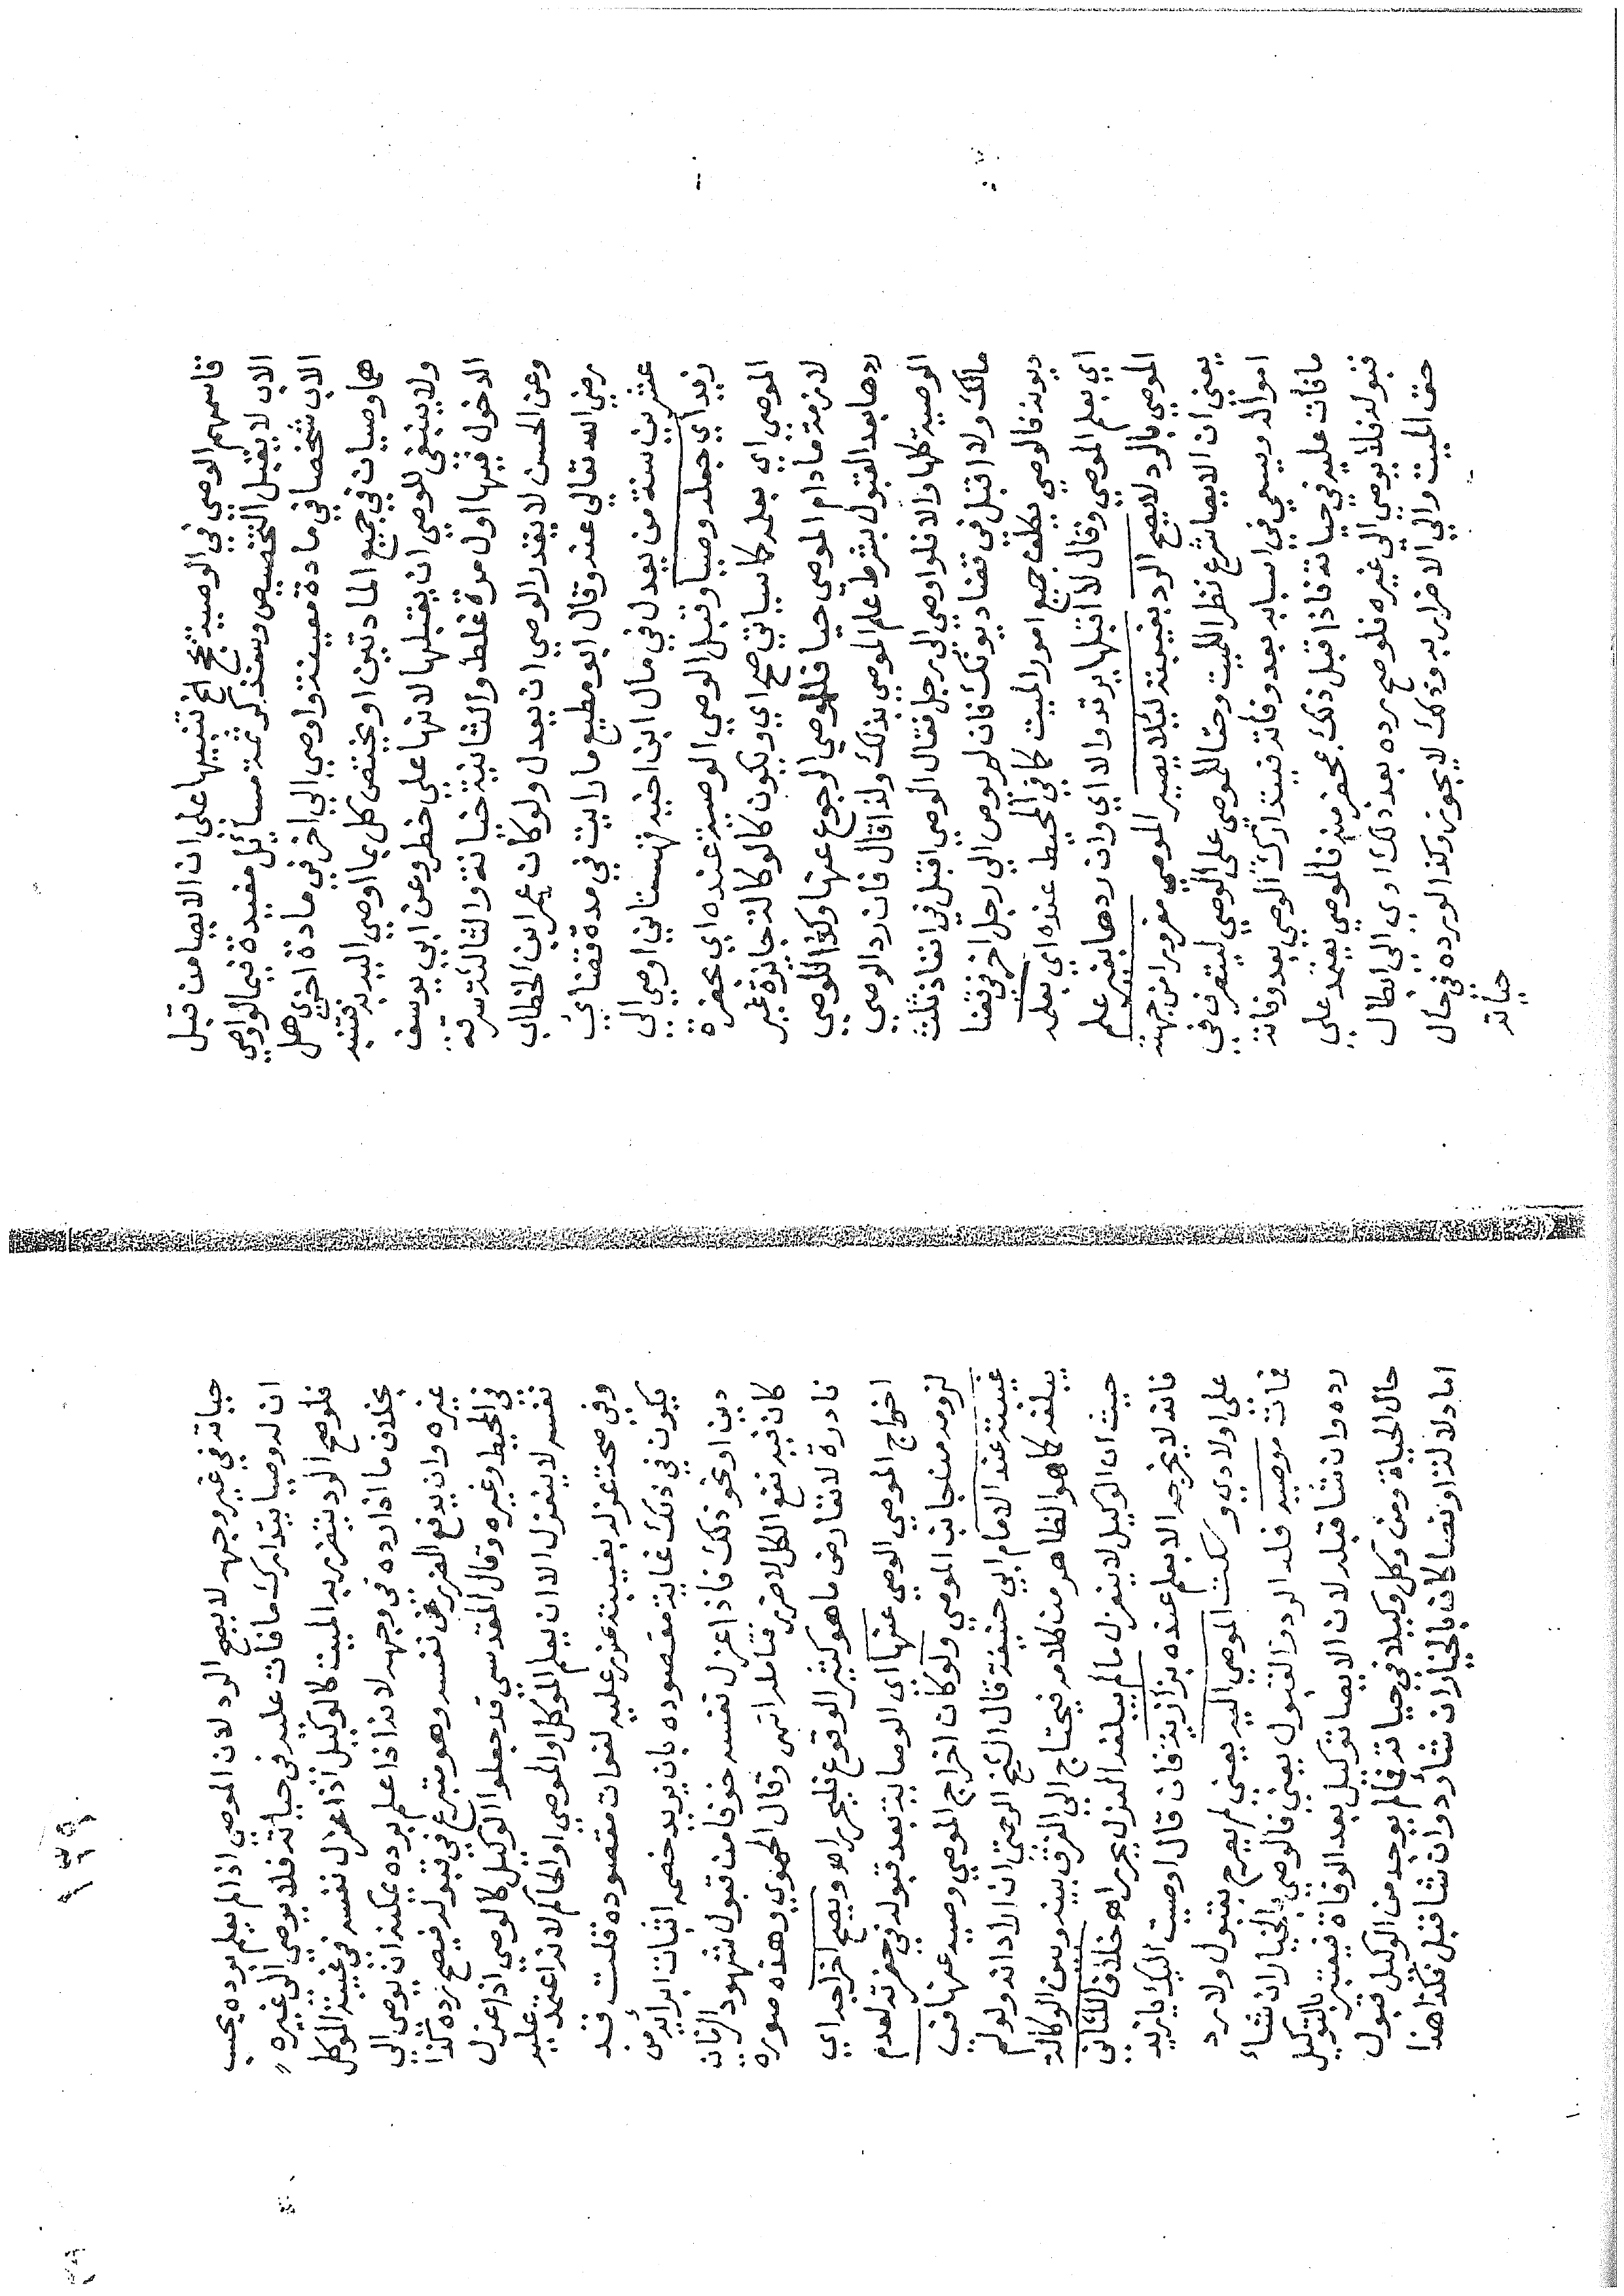 قاسمهم الوصي في الوصية بحج الخ تنبيها على ان الايصا من قبل
الاب لا يقبل التخصيص وسنذكر ثمة مسائل مفيدة فيما لو اوصي
الاب شخصا في مادة معينة واوصي الي اخر في مادة اخري هل
هما وصيان في جميع المادتين او يختص كل بما اوصي اليه به فتنبه
ولا ينبغي للوصي ان يقبلها لانها علي خطر وعن ابي يوسف
الدخول فيها اول مرة غلط والثانية خيانة والثالثة سرقة
وعن الحسن لا يقدر الوصي ان يعدل ولو كان عمر ابن الخطاب
رضي الله تعالي عنه وقال ابو مطيع ما رايت في مدة قضائي
عشرين سنة من يعدل في مال ابن اخيه قهستاني اوصي الي
زيد اي جعله وصيا وقبل الوصي الوصية عنده اي بحضرة
الموصي اي بعلمه كما سياتي صح اي ويكون كالوكالة جايزة غير
لازمة ما دام الموصي حيا فللموصي الرجوع عنها وكذا للوصي
ردها بعد القبول بشرط علم الموصي بذلك ولذا قال فان رد الوصي
الوصية كلها والا فلو اوصي الي رجل فقال الوصي اقبل في انفاذ ثلث
مالك ولا اقبل في قضا ديونك فان لم يوص الي رجل اخر في قضا
ديونه فالوصي يكلف جميع امور الميت كما في المحيط عنده اي بعلمه
اي بعلم الموصي وقال لا اقبلها يرتد والا اي وان ردها بغير علم
الموصي بالرد لا يصح الرد بغيبته ليلا يصير الموصي مغرورا من جهته
يعني ان الايصا شرع نظرا للميت وحثا للموصي على الوصي ليتصرف في
امواله ويسعي في اسبابه بعد وفاته فيتدارك الوصي بعد وفاته
ما فات عليه في حياته فاذا قبل ذلك بمحضر منه فالموصي يعتمد علي
قبوله فلا يوصي الي غيره فلو صح رده بعد ذلك ادي الي ابطال
حق الميت والي الاضرار به وذلك لا يجوز وكذا لو رده في حال
حياته
حياته في غير وجهه لا يصح الرد لان الموصي اذا لم يعلم برده يحسب
ان له وصيا يتدارك ما فات عليه في حياته فلا يوصي الي غيره
فلو صح الرد يتضرر به الميت كالوكيل اذا عزل نفسه في غيبة الموكل
بخلاف ما اذا رده في وجهه لانه اذا علم برده يمكنه ان يوصي الي
غيره وان يدفع الضرر عن نفسه وهو متبرع في قبوله فيصح رده كذا
في المحيط وغيره وقال المقدسي قد جعلوا الوكيل كالوصي اذا عزل
نفسه لا ينعزل الا ان يعلم الموكل او الموصي او الحاكم لانه اعتمد عليه
وفي صحة عزله بغيبته ضرر عليه لفوات مقصوده قلت قد
يكون في ذلك غاية مقصوده بان يريد خصمه اثبات ابرايه من
دين او نحو ذلك فاذا عزل نفسه خوفا من قبول شهود الزيان
كان فيه نفع الكل لا ضرر فتامله انتهي وقال الحموي وهذه صورة
نادرة لا تعارض ما هو كثير الوقوع فليحرر اهـ ويصح اخراجه اي
اخراج الموصي الوصي عنها اي الوصاية بعد قبوله في حضرته لعدم
لزومه من جانب الموصي ولو كان اخراج الموصي وصيه عنها في
غيبته عند الامام ابي حنيفة قال الشيخ الرحمتي ان اراد انه ولو لم
يبلغه كما هو الظاهر من كلامه فيحتاج الي الفرق بينه وبين الوكالة
حيث ان الوكيل لا ينعزل ما لم يبلغه العزل يحرر اهـ خلافا للثاني
فانه لا يخرجه الا بعلم عنده بزازية فان قال اوصيت اليك يا زيد
على اولادي وسكت الموصي اليه يعني لم يصرح بقبول ولا رد
فمات موصيه فله الرد والقبول يعني فالوصي بالخيار ان شاء
رده وان شا قبله لان الايصا توكيل بعد الوفاة فيعتبر بالتوكيل
حال الحياة ومن وكل وكيلا في حياته فلم يوجد من الوكيل قبول
اما دلالة او نصا كان بالخيار ان شا رد وان شا قبل فكذا هذا
١٣٩